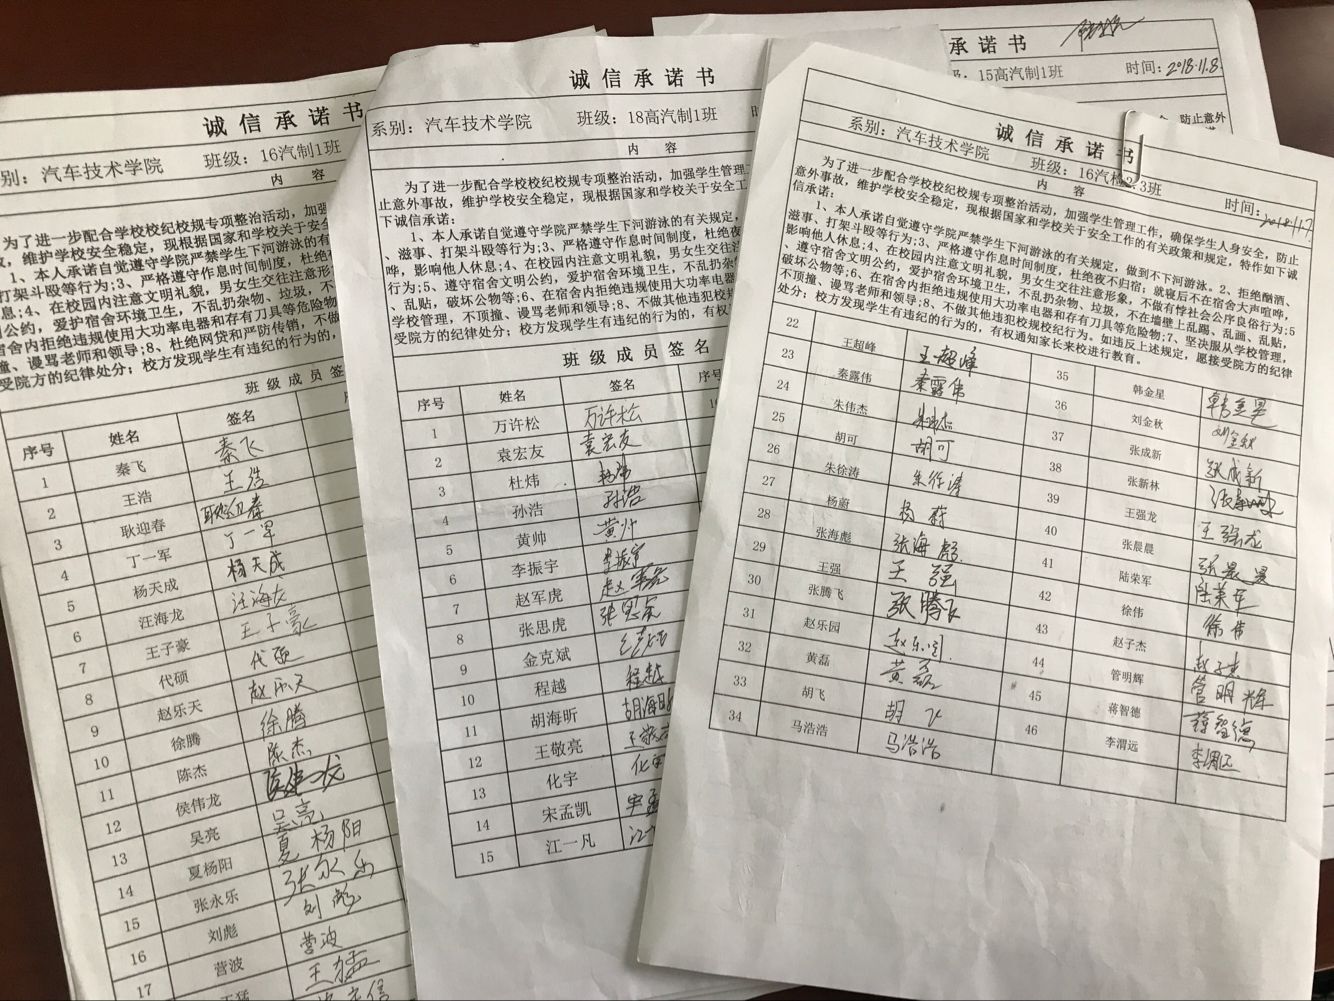 诚信承诺书
别：汽车技术学院 班级：16汽制1班
内 容
为了进一步配合学校校纪校规专项整治活动，加强
，维护学校安全稳定，现根据国家和学校关于安全
1、本人承诺自觉遵守学院严禁学生下河游泳的有
打架斗殴等行为;3、严格遵守作息时间制度，杜绝
息;4、在校园内注意文明礼貌，男女生交往注意形
公约，爱护宿舍环境卫生，不乱扔杂物、垃圾，不
宿舍内拒绝违规使用大功率电器和存有刀具等危险物
、谩骂老师和领导;8、杜绝网贷和严防传销，不做
受院方的纪律处分；校方发现学生有违纪的行为的，
班级成员签
序号 姓名 签名
1 秦飞 秦飞
2 王浩 王浩
3 耿迎春 耿迎春
4 丁一军 丁一军
5 杨天成 杨天成
6 汪海龙 汪海龙
7 王子豪 王子豪
8 代硕 代硕
9 赵乐天 赵乐天
10 徐腾 徐腾
11 陈杰 陈杰
12 侯伟龙
13 吴亮 吴亮
14 夏杨阳 夏杨阳
15 张永乐 张永乐
16 刘彪 刘彪
17 营波 营波
王猛 王猛
诚信承诺书
系别：汽车技术学院 班级：18高汽制1班
内 容
为了进一步配合学校校纪校规专项整治活动，加强学生管理
止意外事故，维护学校安全稳定，现根据国家和学校关于安全工
下诚信承诺：
1、本人承诺自觉遵守学院严禁学生下河游泳的有关规定，
、滋事、打架斗殴等行为;3、严格遵守作息时间制度，杜绝夜
哗，影响他人休息;4、在校园内注意文明礼貌，男女生交往注
行为;5、遵守宿舍文明公约，爱护宿舍环境卫生，不乱扔杂
、乱贴，破坏公物等;6、在宿舍内拒绝违规使用大功率电器
学校管理，不顶撞、谩骂老师和领导;8、不做其他违犯校规
受院方的纪律处分；校方发现学生有违纪的行为的，有权
班级成员签名
序号 姓名 签名 序号
1 万许松 万许松
2 袁宏友 袁宏友
3 杜炜 杜炜
4 孙浩 孙浩
5 黄帅 黄帅
6 李振宇 李振宇
7 赵军虎 赵军虎
8 张思虎 张思虎
9 金克斌
10 程越 程越
11 胡海昕 胡海昕
12 王敬亮 王敬亮
13 化宇 化宇
14 宋孟凯 宋孟
15 江一凡 江一
承诺书
15高汽制1班 时间：2018.11.8.
，防止意外
诚信承诺书
系别：汽车技术学院 班级：16汽检2.3班 时间：
内 容
为了进一步配合学校校纪校规专项整治活动，加强学生管理工作，确保学生人身安全，防止
意外事故，维护学校安全稳定，现根据国家和学校关于安全工作的有关政策和规定，特作如下诚
信承诺：
1、本人承诺自觉遵守学院严禁学生下河游泳的有关规定，做到不下河游泳。2、拒绝酗酒、
滋事、打架斗殴等行为;3、严格遵守作息时间制度，杜绝夜不归宿；就寝后不在宿舍大声喧哗，
影响他人休息;4、在校园内注意文明礼貌，男女生交往注意形象，不做有悖社会公序良俗行为;5
、遵守宿舍文明公约，爱护宿舍环境卫生，不乱扔杂物、垃圾，不在墙壁上乱踢、乱画、乱贴，
破坏公物等;6、在宿舍内拒绝违规使用大功率电器和存有刀具等危险物;7、坚决服从学校管理，
不顶撞、谩骂老师和领导;8、不做其他违犯校规校纪行为。如违反上述规定，愿接受院方的纪律
处分；校方发现学生有违纪的行为的，有权通知家长来校进行教育。
22 王超峰 王超峰 35 韩金星 韩金星
23 秦露伟 秦露伟 36 刘金秋 刘金秋
24 朱伟杰 朱伟杰 37 张成新 张成新
25 胡可 胡可 38 张新林
26 朱徐涛 朱徐涛 39 王强龙 王强龙
27 杨蔚 杨蔚 40 张晨晨 张晨晨
28 张海彪 张海彪 41 陆荣军 陆荣军
29 王强 王强 42 徐伟 徐伟
30 张腾飞 张腾飞 43 赵子杰 赵子杰
31 赵乐园 赵乐园 44 管明辉 管明辉
32 黄磊 黄磊 45 蒋智德 蒋智德
33 胡飞 胡飞 46 李渭远 李渭远
34 马浩浩 马浩浩